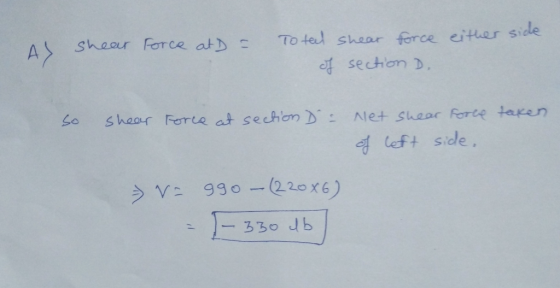 A) Shear Force at D = Total shear force either side
of section D.
So Shear Force at section D = Net Shear Force taken
of left side.
⇒ V = 990 - (220×6)
= - 330 lb